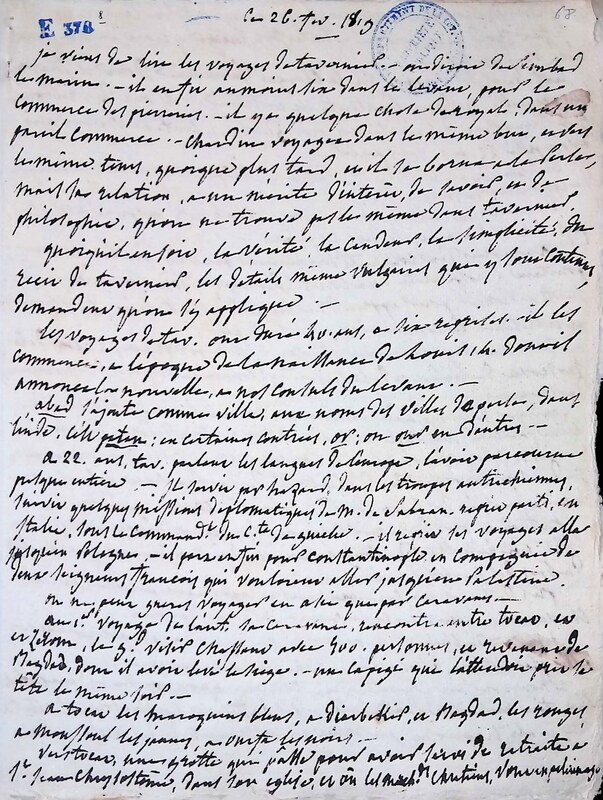 E 378
68
Ce 26. fev. 1819
je viens de lire les voyages de tavernier. - on diroit de Simbad
le marin. - il en fit au moins six dans le levant, pour le
Commerce des pierreries. - il y a quelque chose de royal, dans un
pareil Commerce. - Chardin voyagea dans le même but, et vers
le même tems, quoique plus tard, et il se borna a la Perse,
mais sa relation, a un mérite d'intérêt, de savoir, et de
philosophie, qu'on ne trouve pas le même dans tavernier
quoiqu'il en soit, la vérité, la candeur, la simplicité, du
recit de tavernier, les details même vulgaires que y sont contenus,
demandent qu'on s'y applique. -
les voyages de tav. ont duré 40. ans, a six reprises. - il les
commença, a l'époque de la naissance de Louis 14. dont il
annonca la nouvelle, a nos Consuls du levant. -
abad s'ajoute comme ville, aux noms des villes de perse, dans
l'inde, c'est patan; en certaines contrées, or; ou our en d'autres -
a 22. ans, tav. parloit les langues de l'europe, l'avoit parcourue
presque entiere. - Il servit par hazard, dans les troupes autrichiennes,
suivit quelques missions diplomatiques de M. de Sabran. reprit parti, en
Italie, sous le Command.t du C.te de - il reprit ses voyages alla
jusqu'en Pologne, - il part enfin pour constantinople en compagnie de
deux seigneurs francois qui vouloient aller jusqu'en Palestine.
on ne peut gueres voyager en asie que par caravanes. -
au 1.er voyage de l'aut. sa caravane, rencontra entre tocat, et
erzerom, le g.d visir avec 400. personnes, et revenant de
Bagdad, dont il avoit levé le siege. - un Capigi qui l'attendoit prit sa
tête le même soir. -
a tocat les maroquins bleus, a diarbekir, et Bagdad, les rouges
a moussoul les jaunes, a ourfa les noirs. -
vers tocat, une grotte qui passe pour avoir servi de retraite a
S.t Jean Chrysostôme, dans son eglise, et où les march.ds chretiens, vont en pelerinage